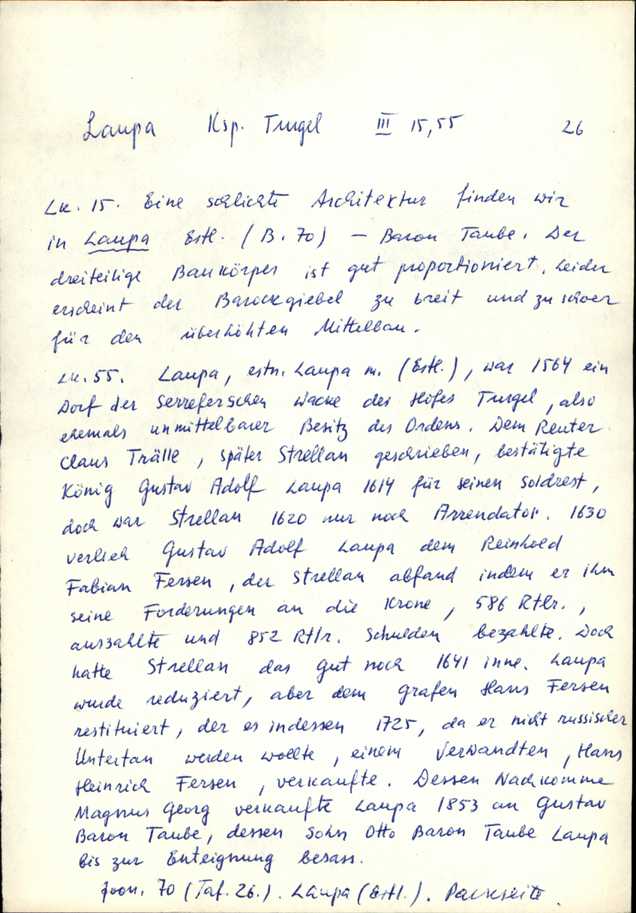 Laupa Ksp. Turgel III 15,55 26
Lk. 15. Eine schlichte Architektur finden wir
in Laupa Estl. (B. 70) – Baron Taube. Der
dreiteilige Baukörper ist gut proportioniert. Leider
erscheint der Barockgiebel zu breit und zu schwer
für den überhöhten Mittelbau.
Lk. 55. Laupa, estn. Laupa m. (Estl.), war 1564 ein
Dorf der Serreferschen Wacke des Hofes Turgel, also
ehemals unmittelbarer Besitz des Ordens. Dem Reuter
Claus Trälle, später Strellau geschrieben, bestätigte
König Gustav Adolf Laupa 1614 für seinen Soldrest,
doch war Strellau 1620 nur noch Arrendator. 1630
verlieh Gustav Adolf Laupa dem Reinhold
Fabian Fersen, der Strellau abfand indem er ihm
seine Forderungen an die Krone, 586 Rtlr.,
auszahlte und 852 Rtlr. Schulden bezahlte. Doch
hatte Strellau das Gut noch 1641 inne. Laupa
wurde reduziert, aber dem Grafen Hans Fersen
restituiert, der es indessen 1725, da er nicht russischer
Untertan werden wollte, einem Verwandten, Hans
Heinrich Fersen, verkaufte. Dessen Nachkomme
Magnus Georg verkaufte Laupa 1853 an Gustav
Baron Taube, dessen Sohn Otto Baron Taube Laupa
bis zur Enteignung besass.
70 (Taf. 26.). Laupa (Estl.). Parkseite.